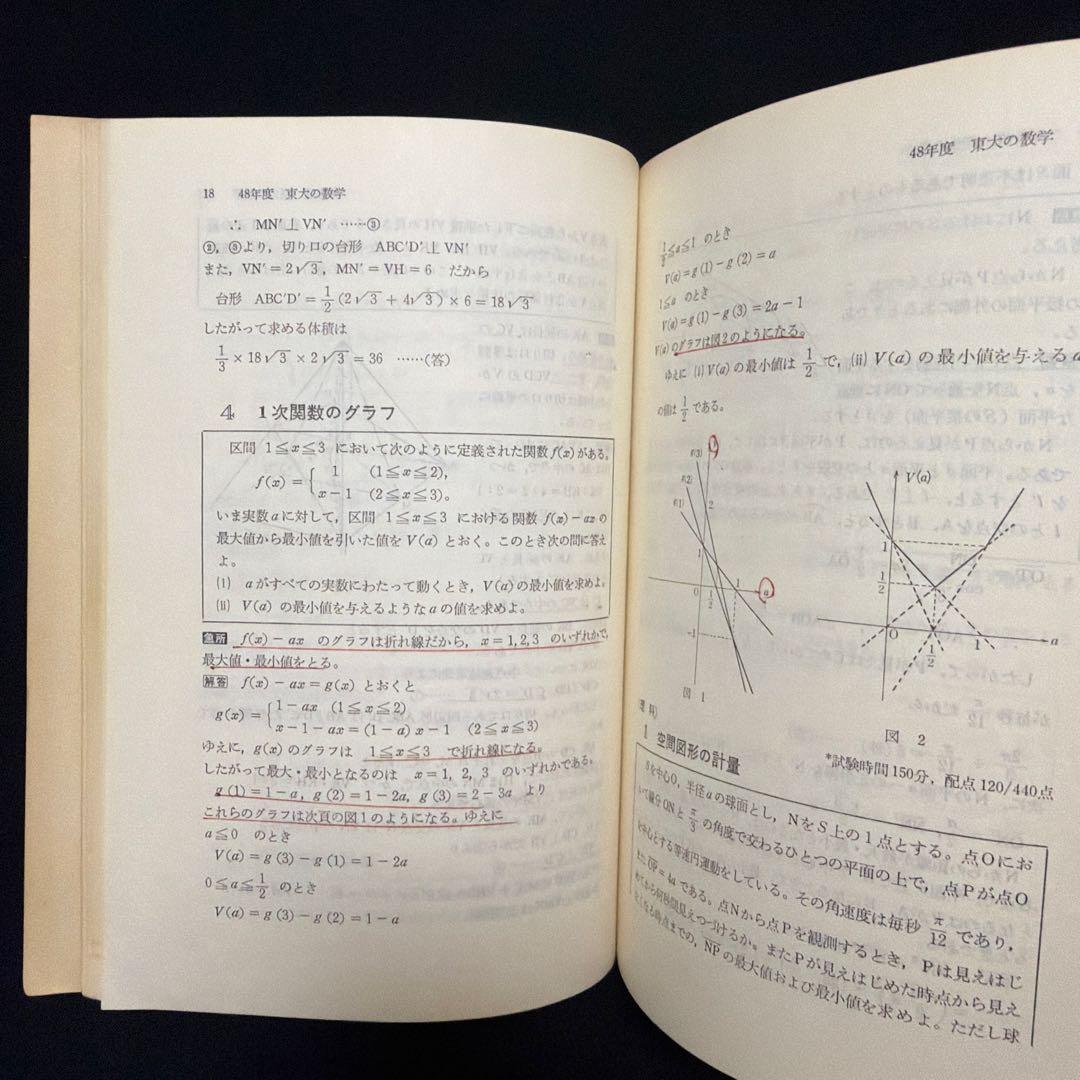 18 48年度 東大の数学
∴ MN′⊥VN′ ……③
②, ③より, 切り口の台形 ABC′D′⊥VN′
また, VN′=2√3, MN′=VH=6 だから
台形 ABC′D′=1/2(2√3+4√3)×6=18√3
したがって求める体積は
1/3×18√3×2√3=36 ……(答)
4 1次関数のグラフ
区間 1≦x≦3 において次のように定義された関数 f(x) がある。
f(x)={1 (1≦x≦2),
x−1 (2≦x≦3)。
いま実数 a に対して, 区間 1≦x≦3 における関数 f(x)−ax の
最大値から最小値を引いた値を V(a) とおく。このとき次の問に答え
よ。
(i) a がすべての実数にわたって動くとき, V(a) の最小値を求めよ。
(ii) V(a) の最小値を与えるような a の値を求めよ。
急所 f(x)−ax のグラフは折れ線だから, x=1,2,3 のいずれかで,
最大値・最小値をとる。
解答 f(x)−ax=g(x) とおくと
g(x)={1−ax (1≦x≦2)
x−1−ax=(1−a)x−1 (2≦x≦3)
ゆえに, g(x)のグラフは 1≦x≦3 で折れ線になる。
したがって最大・最小となるのは x=1, 2, 3 のいずれかである。
g(1)=1−a, g(2)=1−2a, g(3)=2−3a より
これらのグラフは次頁の図1のようになる。ゆえに
a≦0 のとき
V(a)=g(3)−g(1)=1−2a
0≦a≦1/2 のとき
V(a)=g(3)−g(2)=1−a
48年度 東大の数学
1/2≦a≦1 のとき
V(a)=g(1)−g(2)=a
1≦a のとき
V(a)=g(1)−g(3)=2a−1
V(a)のグラフは図2のようになる。
ゆえに (i) V(a) の最小値は 1/2 で, (ii) V(a) の最小値を与える a
の値は 1/2 である。
g(3)
g(2)
g(1)
2
1
0
1/2
1
a
−1
図 1
V(a)
1
1/2
O
1/2
1
a
図 2
*試験時間150分, 配点 120/440点
理科)
1 空間図形の計量
Sを中心O, 半径aの球面とし, NをS上の1点とする。点Oにお
いて線分ONと π/3 の角度で交わるひとつの平面の上で, 点Pが点O
を中心とする等速円運動をしている。その角速度は毎秒 π/12 であり,
また OP=4a である。点Nから点Pを観測するとき, Pは見えはじ
めてから何秒間見えつづけるか。またPが見えはじめた時点から見え
なくなる時点までの, NPの最大値および最小値を求めよ。ただし球